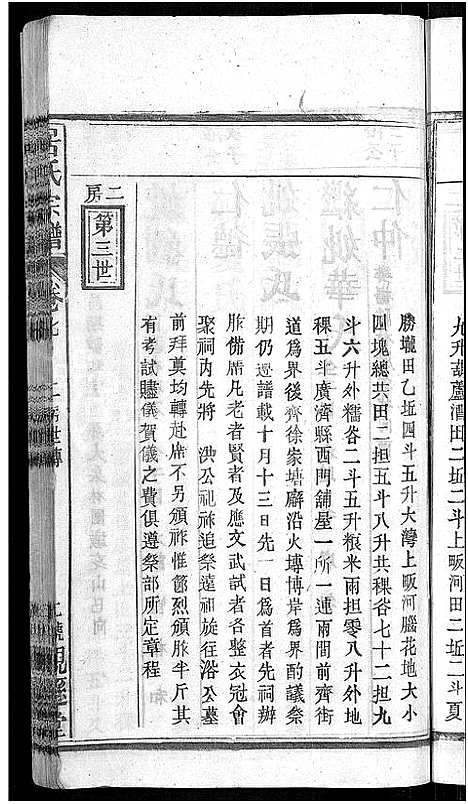 九升葫蘆潭田二坵二斗上畈河田二坵二斗夏
勝壠田乙坵四斗五升大灣上畈河腦花地大小
四塊總共田二担五斗八升共稞谷七十二担九
斗六升外糯谷二斗五升粮米兩担零八升外地
稞五斗廣濟縣西門舖屋一所一連兩間前齊街
道爲界後齊徐家塘廨沿火塼博岸爲界酌議祭
期仍遵譜載十月十三日先一日爲首者先祠辦
胙俻席凡老者賢者及應文武試者各整衣冠會
聚祠内先將 洪公祀祿追祭遠祖旋往浴公墓
前拜奠均轉赴席不另頒胙惟節烈頒胙半斤其
有考試贐儀賀儀之費俱遵祭部所定章程
二房
第三世
呂氏宗譜
卷七
二房世傳